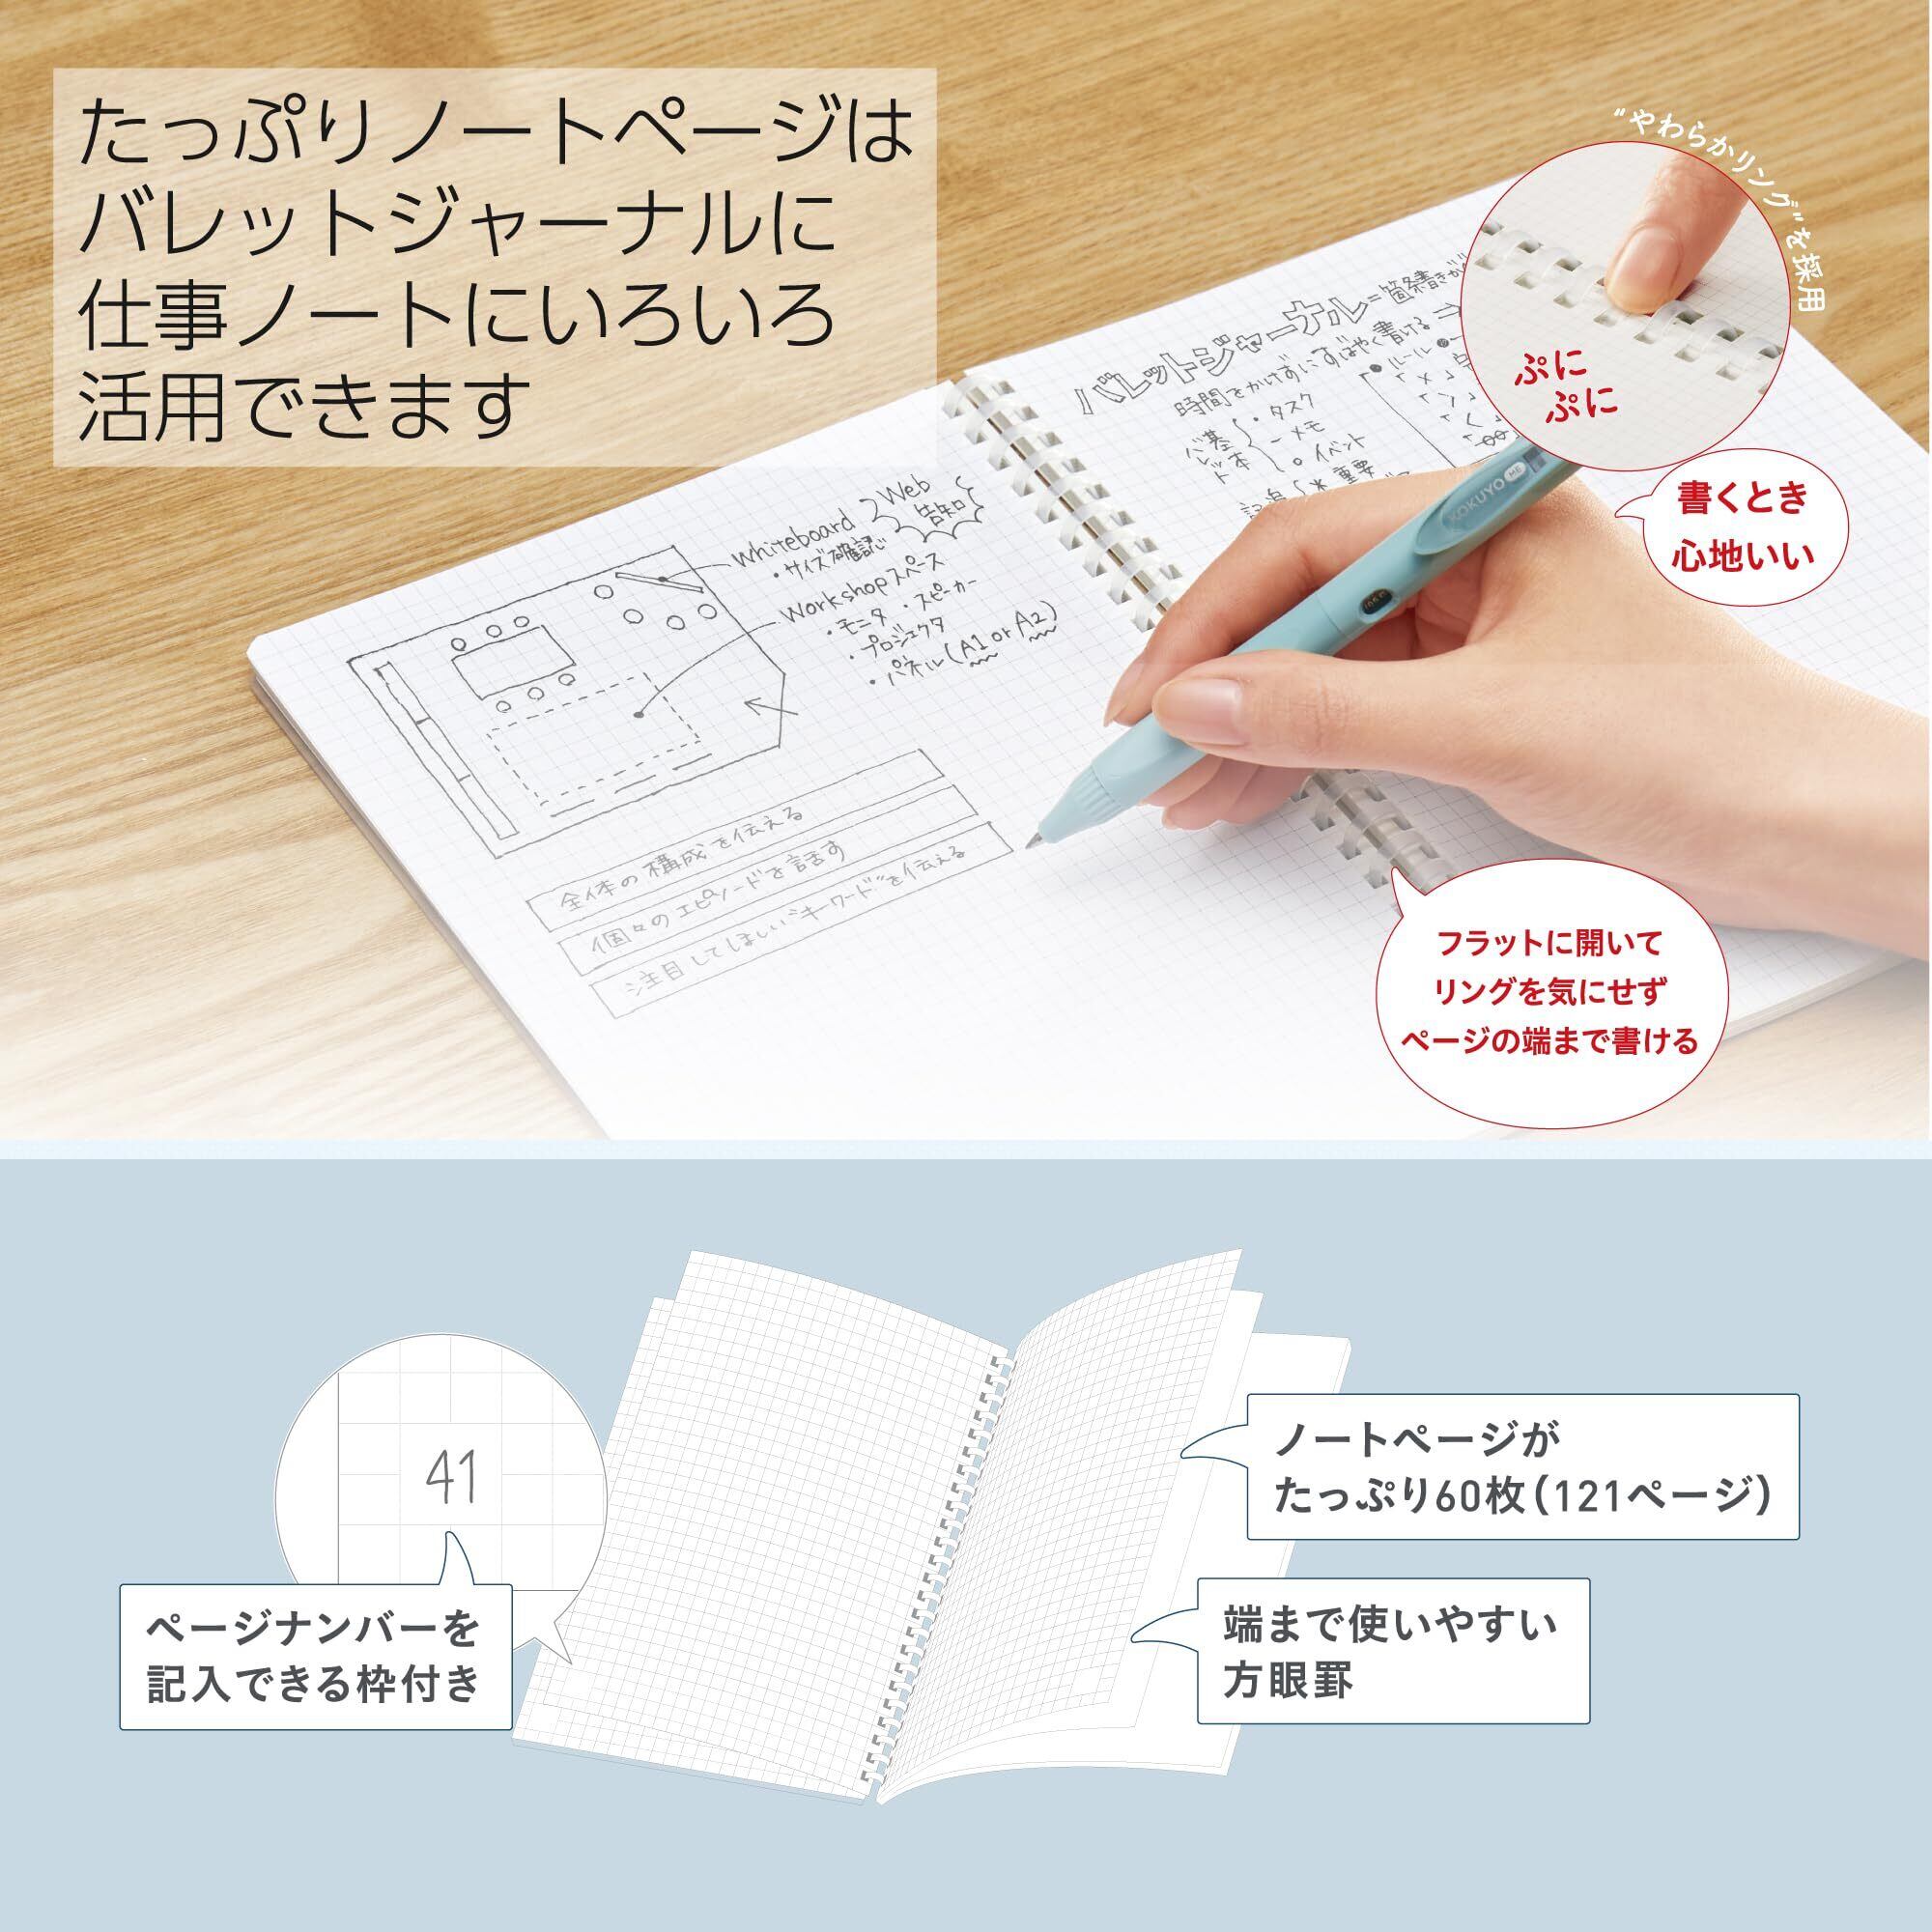 たっぷりノートページは
バレットジャーナルに
仕事ノートにいろいろ
活用できます
"やわらかリング"を採用
ぷに
ぷに
書くとき
心地いい
バレットジャーナル=箇条書きが
時間をかけずにすばやく書ける⇒
・ルール
基本
バレット
・タスク
-メモ
○イベント
*重要
KOKUYO ME
Web
告知
Whiteboard
・サイズ確認
Workshopスペース
・モニタ ・スピーカー
・プロジェクタ
・パネル(A1 or A2)
全体の構成を伝える
個々のエピソードを話す
注目してほしい"キーワード"を伝える
フラットに開いて
リングを気にせず
ページの端まで書ける
41
ページナンバーを
記入できる枠付き
ノートページが
たっぷり60枚(121ページ)
端まで使いやすい
方眼罫